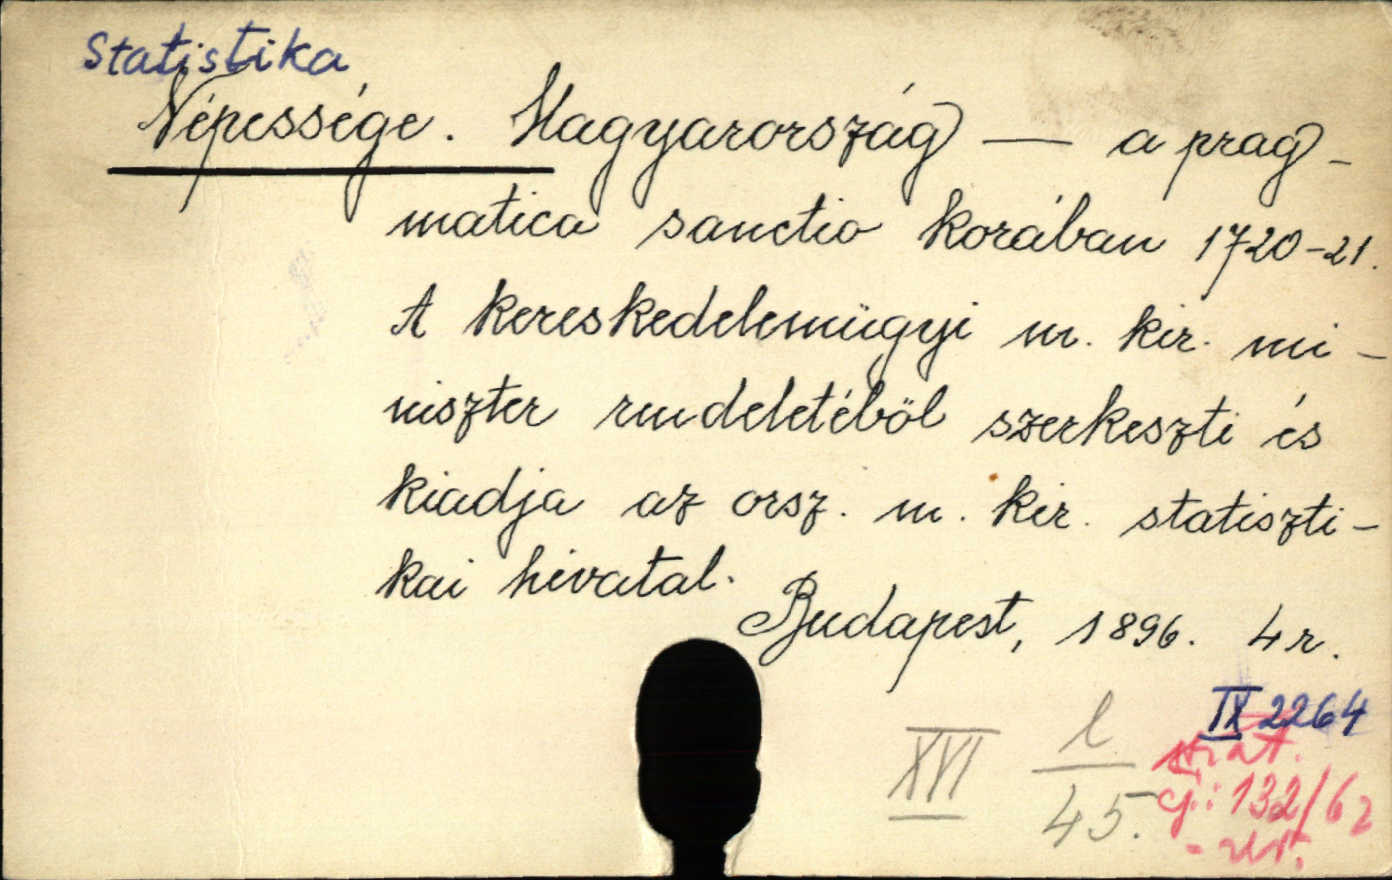 Statistika
Népessége. Magyarország — a prag-
matica sanctio korában 1720-21.
A kereskedelemügyi m. kir. mi-
niszter rendeletéből szerkeszti és
kiadja az orsz. m. kir. statiszti-
kai hivatal.
Budapest, 1896. 4r.
IX 2264
XVI l/45.
cj.: 132/62